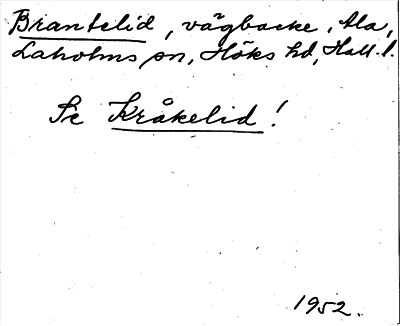 Brantelid, vägbacke, Ala,
Laholms sn, Höks hd, Hall. l.
Se Kråkelid!
1952.